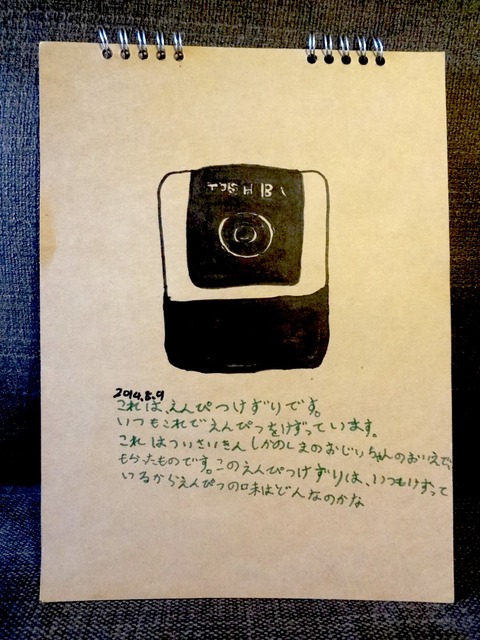 2014.8.9
これは、えんぴつけずりです。
いつもこれでえんぴつをけずっています。
これはついさいきんしかのしまのおじいちゃんのおいえで、
もらったものです。このえんぴつけずりは、いつもけずって
いるからえんぴつの味はどんなのかな